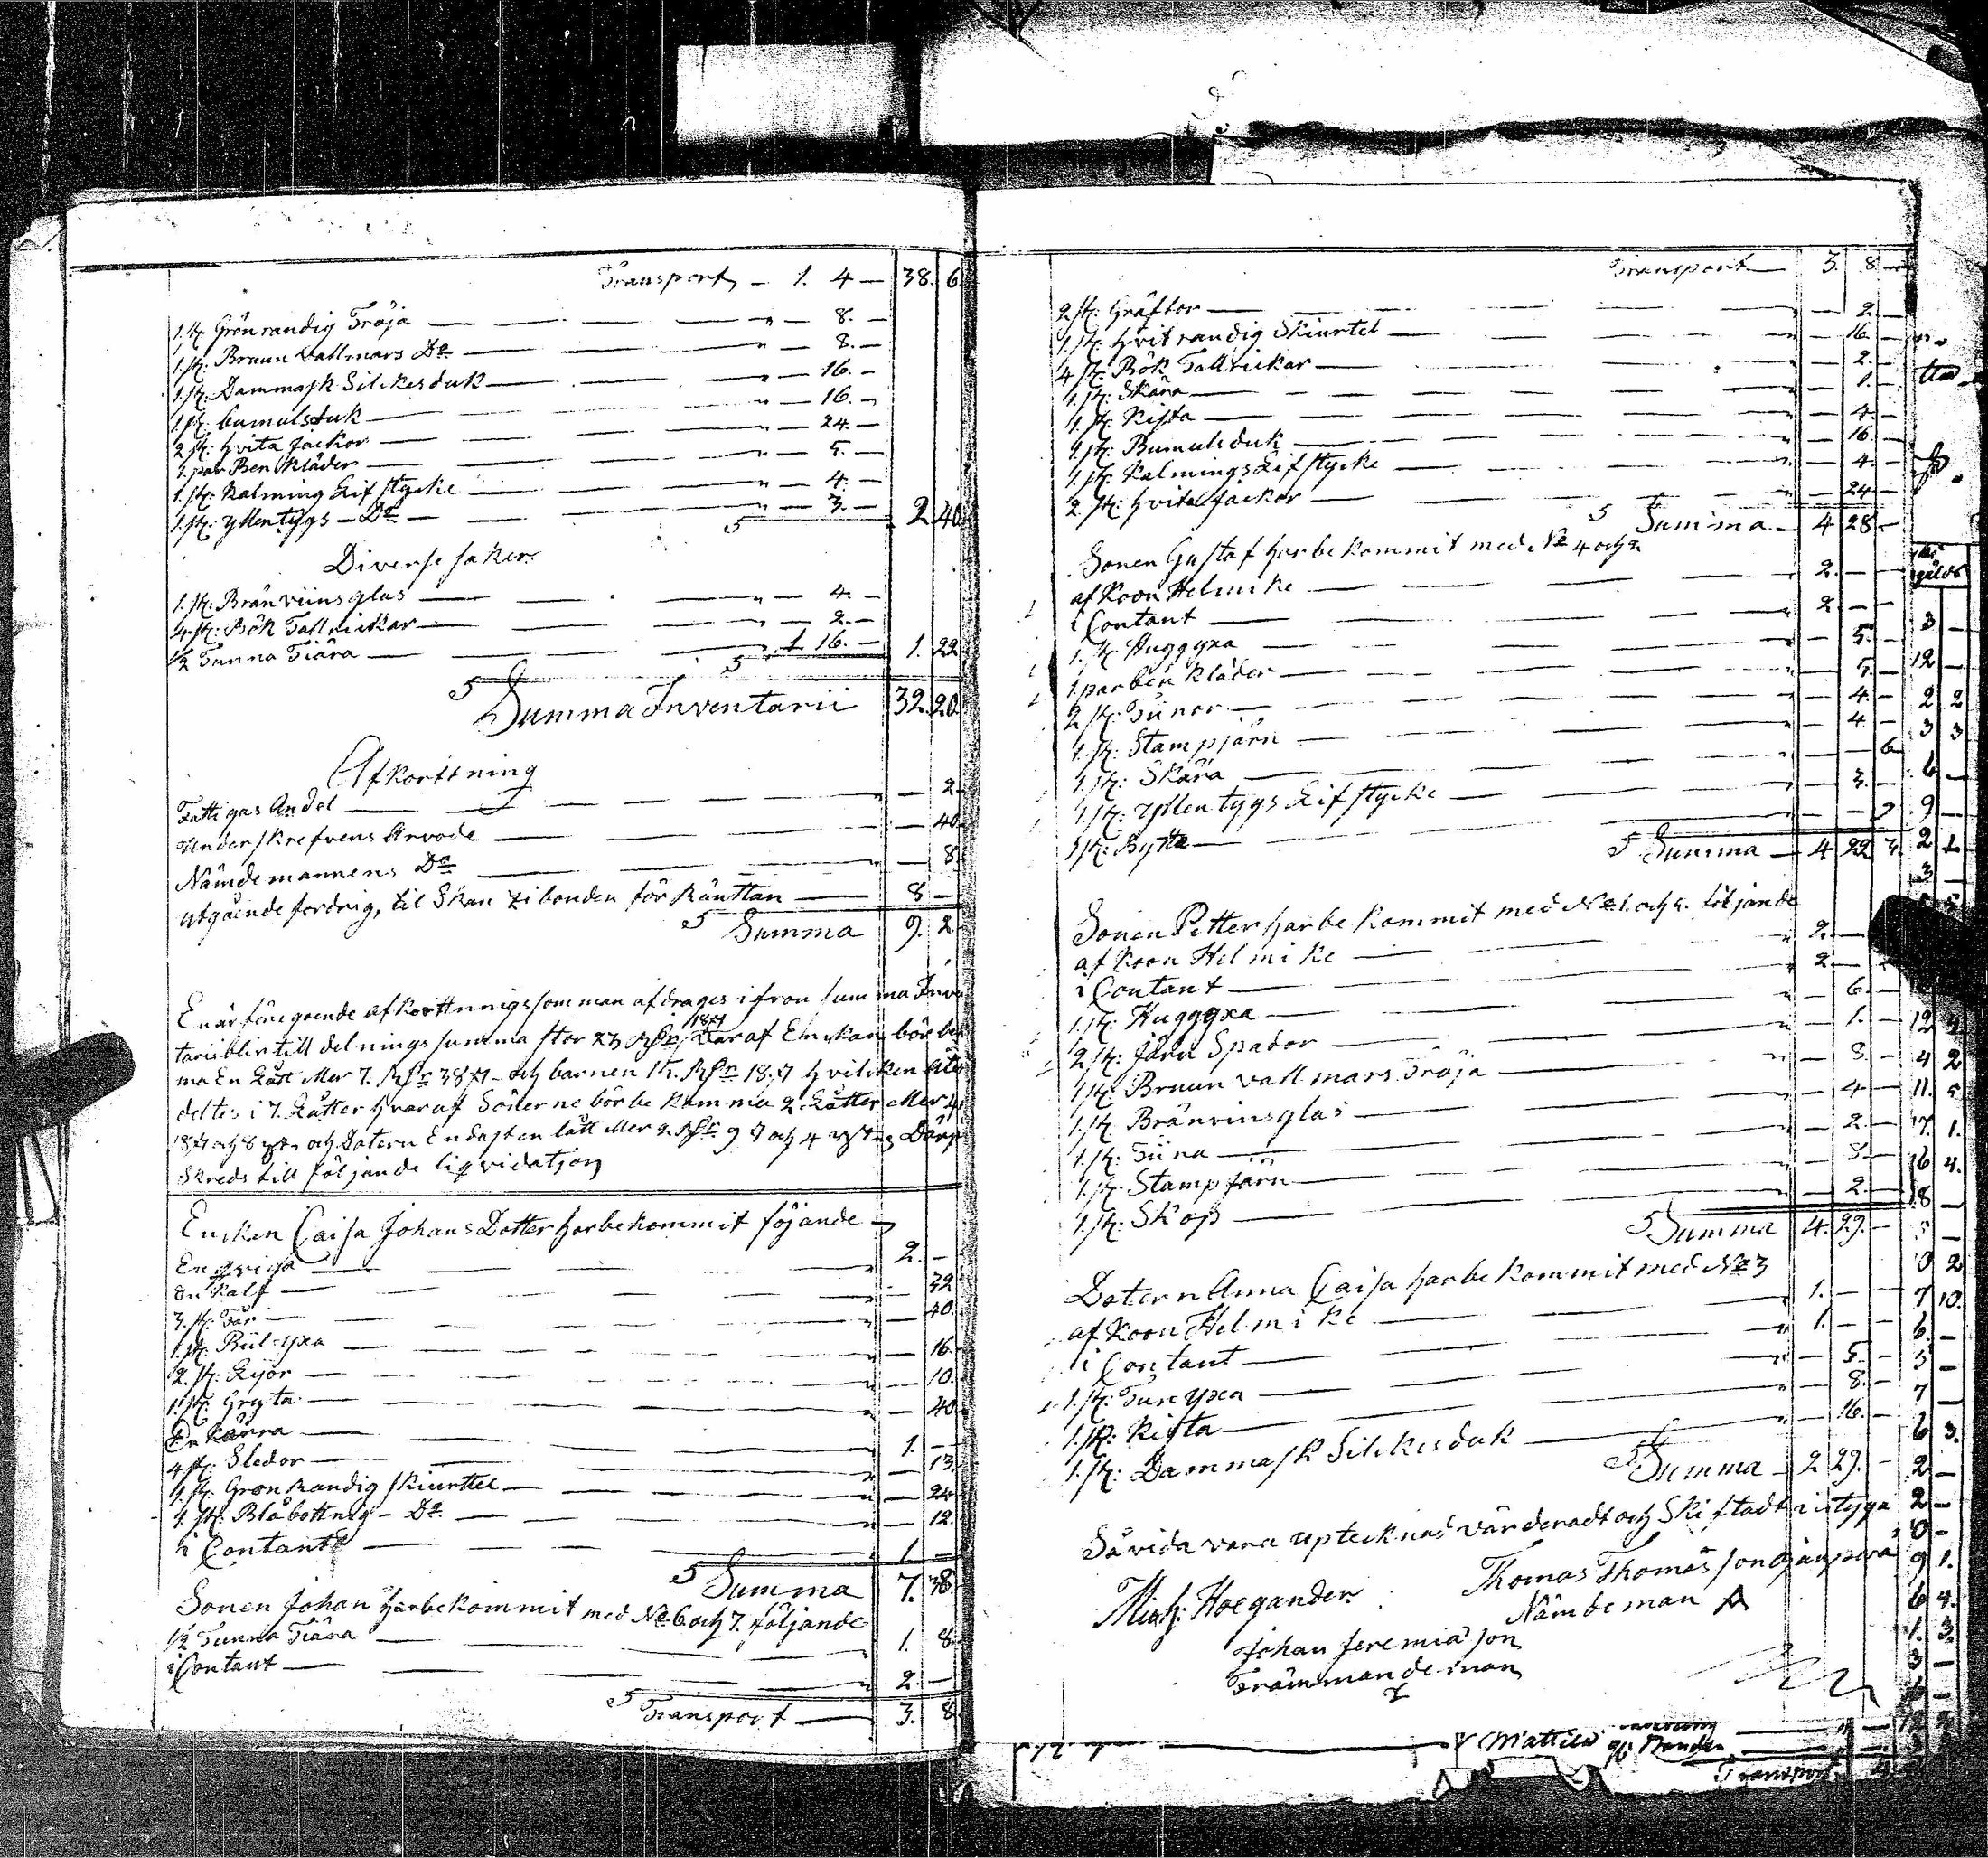 Transport 1. 4 38. 6.
1. St: Grön randig Tröja 8.
1. St: Bruun Vallmars Do 8.
1. St: Dammask Silckes duk 16.
1. St: bumulsduk 16.
2 St: hvita Jäckor 24.
1. par Ben kläder 5.
1. St: Kalming Lifstycke 4.
1. St: yllentygs Do 3. 2 40
Diverse saker
1. St: Bränviins glas 4.
4 St: Bök Tallrickar 2.
1/2 Tunna Tiära 1 16. 1. 22
Summa Inventarii 32. 20
Afkorttning
Fattigas Andel 2.
Underskrefvens Arvode 40
Nämdemannens Do 8
utgående fordrig, til Skan bonden för Ränttan 8
Summa 9. 2
En är föregoende afkorttnings somman afdrages ifron summa Inven
tarii blir till delnings summa stor 23 Rdr 18 Daraf Enckan bör be
ma En Lått eller 7. Rdr 38 och barnen 15. Rdr 18. hvilcken åter
deltes i 7. Låtter hvaraf Sönerne bör be komma 2. Låtter eller 4
18 och 8 och Datern Endast en lått eller 2. Rdr 9 och 4
Skreds till följande liqvidatjon
Encken Caisa Johans Dotter har bekommit föjande
En qviga 2.
En Kalf 32
3. St: Får 40.
1. St: Bil-yxa 16
2. St: Lijor 10.
1. St: Gryta 40
En Kärra 1.
4 St: Sledor 13.
1. St: Grön Randig skiurttel 24
1. St: Blåbottnig Do 12.
i Contant 1
Summa 7. 38
Sonen Johan har bekommit med No 6 och 7. följande
1/2 Tunna Tiära 1. 8.
i Contant 2.
Transport 3. 8
Transport 3. 8
2 St: Gräftor 2.
1. St: hvit randig Skiurtel 16.
4 St: Bök Tallrickar 2.
1. St: Skära 1.
1. St: Kista 4.
1. St: Bumuls duk 16.
1. St: Kalmings Lifstycke 4.
2. St: hvita Jäckor 24
Summa 4 28
Sonen Gustaf har bekommit med No 4 och 2
af Koon Helmike 2.
i Contant 2
1. St: Huggyxa 5.
1. par ben kläder 5.
2 St: Tiinor 4.
1. St: Stampjärn 4.
1. St: Skära 6
1. St: Yllen tygs Lifstycke 3.
1 St: Bytta
Summa 4 22
Sonen Petter har bekommit med No 1. och 5. följande
af Koon Helmike 2.
i Contant 2
1. St: Huggyxa 6.
2 St: Järn Spador 1.
1 St: Bruun vallmars Tröja 8.
1. St: Bränvinsglas 4
1. St: Tiina 2.
1. St: Stampjärn 3.
1. St: Skop 2.
Summa 4. 29.
Datern Anna Caisa har bekommit med No 3
af Koon Helmike 1.
i Contant 1.
1. St: yxa 5.
1. St: Kista 8.
1. St: Dammask Silckesduk 16.
Summa 2 29.
Såvida vara uptecknad värderadt och Skiftadt intyga
Mich: Hoegander Thomas Thomasson
Nämdeman
Johan Jeremiason
Främmande man
Mattila
Transport